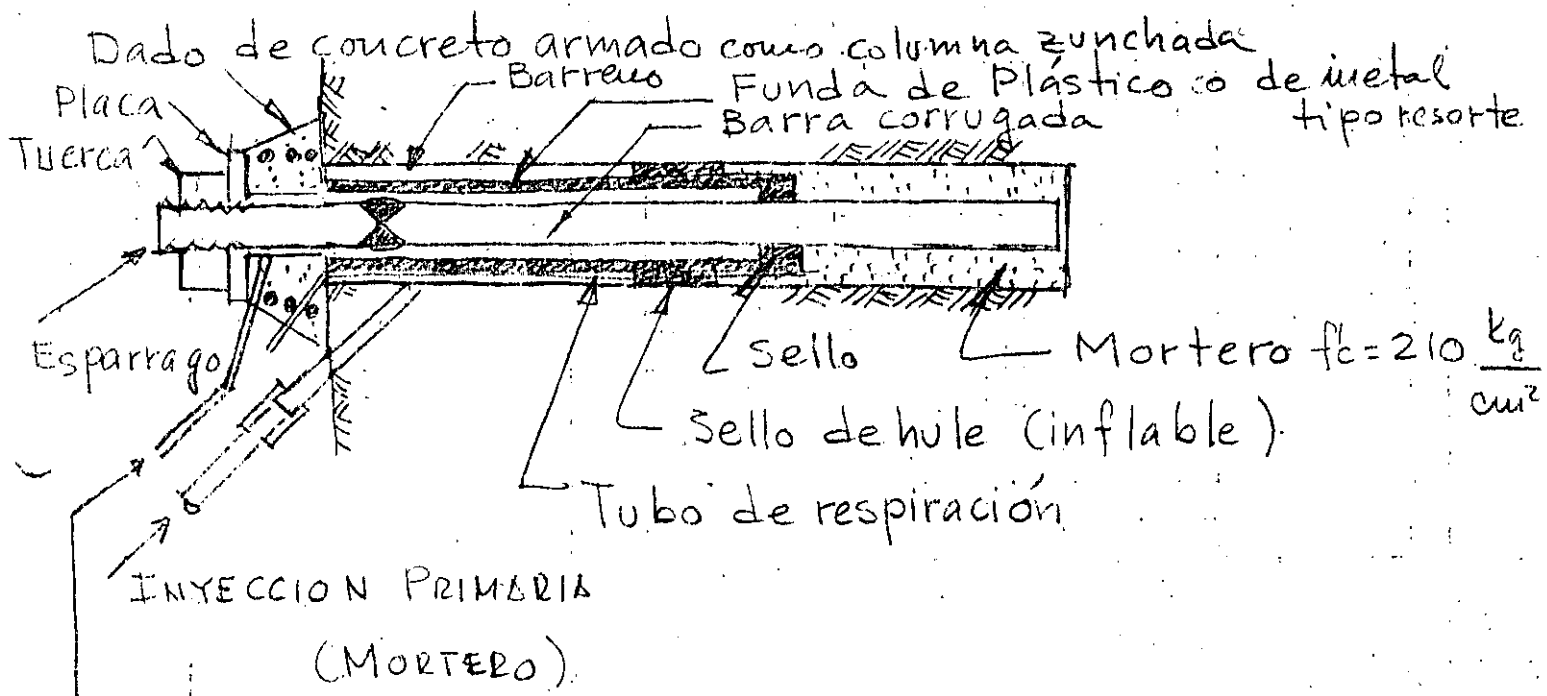 Dado de concreto armado como columna zunchada
Barreno
Funda de Plástico o de metal
tipo resorte
Placa
Barra corrugada
Tuerca
Esparrago
Sello
Mortero f'c = 210 kg/cm²
Sello de hule (inflable)
Tubo de respiración
INYECCION PRIMARIA
(MORTERO)